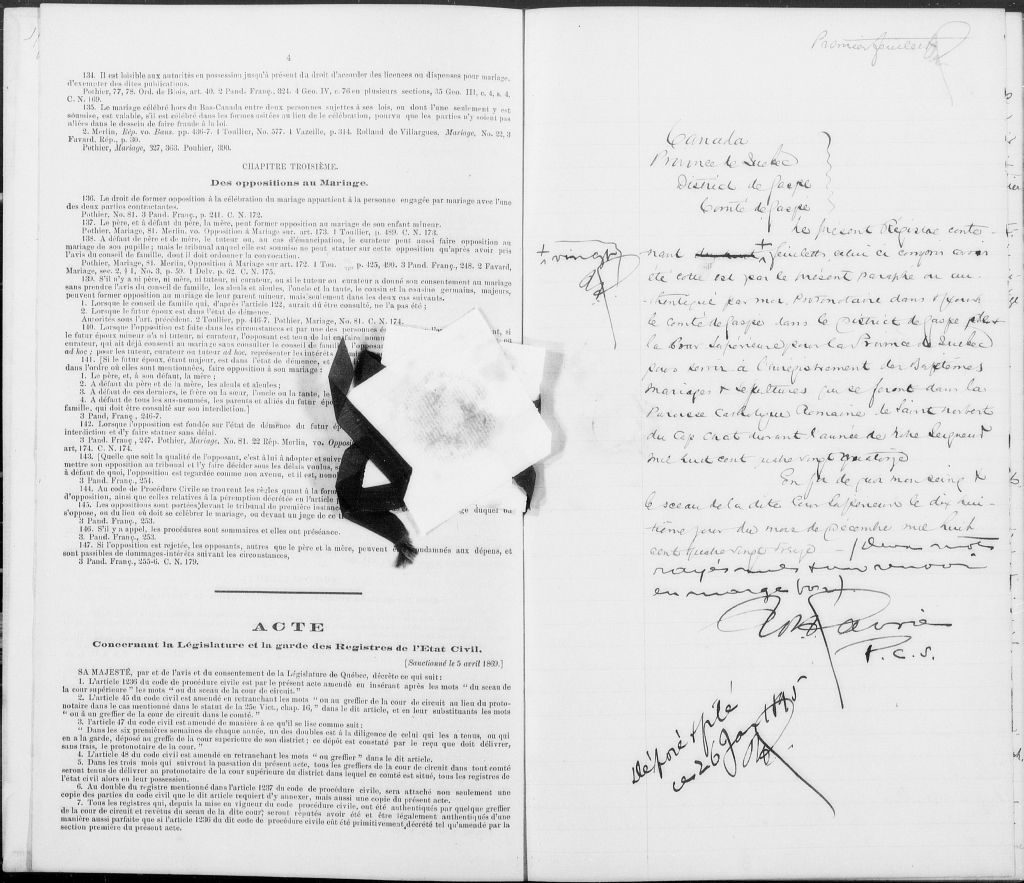 4
134. Il est loisible aux autorités en possession jusqu'à présent du droit d'accorder des licences ou dispenses pour mariage,
d'exempter des dites publications.
Pothier, 77, 78. Ord. de Blois, art. 40. 2 Pand. Franç., 324. 4 Geo. IV, c. 76 en plusieurs sections, 35 Geo. III, c. 4, s. 4,
C. N. 169.
135. Le mariage célébré hors du Bas-Canada entre deux personnes sujettes à ses lois, ou dont l'une seulement y est
soumise, est valable, s'il est célébré dans les formes usitées au lieu de la célébration, pourvu que les parties n'y soient pas
allées dans le dessein de faire fraude à la loi.
2. Merlin, Rép. vo. Bans. pp. 436-7. 1 Toullier, No. 577. 1 Vazeille, p. 314. Rolland de Villargues. Mariage, No. 22, 3
Favard. Rép., p. 30.
Pothier, Mariage, 327, 363. Pouhier, 390.
CHAPITRE TROISIÈME.
Des oppositions au Mariage.
136. Le droit de former opposition à la célébration du mariage appartient à la personne engagée par mariage avec l'une
des deux parties contractantes.
Pothier, No. 81. 3 Pand. Franç., p. 241. C. N. 172.
137. Le père, et à défaut du père, la mère, peut former opposition au mariage de son enfant mineur.
Pothier, Mariage, 81. Merlin. vo. Opposition à Mariage sur art. 173. 1 Toullier, p. 489. C. N. 174.
138. A défaut de père et de mère, le tuteur ou, au cas d'émancipation, le curateur peut aussi faire opposition au
mariage de son pupille; mais le tribunal auquel elle est soumise ne peut statuer sur cette opposition qu'après avoir pris
l'avis du conseil de famille, dont il doit ordonner la convocation.
Pothier, Mariage, 81. Merlin, Opposition à Mariage sur art. 172. 1 Tou. p. 425, 490. 3 Pand. Franç., 248. 2 Favard,
Mariage, sec. 2, § 1, No. 3, p. 59. 1 Delv. p. 62. C. N. 175.
139. S'il n'y a ni père, ni mère, ni tuteur, ni curateur, ou si le tuteur ou curateur a donné son consentement au mariage
sans prendre l'avis du conseil de famille, les aïeuls et aïeules, l'oncle et la tante, le cousin et la cousine germains, majeurs,
peuvent former opposition au mariage de leur parent mineur, mais seulement dans les deux cas suivants.
1. Lorsque le conseil de famille qui, d'après l'article 122, aurait dû être consulté, ne l'a pas été;
2. Lorsque le futur époux est dans l'état de démence.
Autorités sous l'art. précédent. 2 Toullier, pp. 446-7. Pothier, Mariage, No. 81. C. N. 174.
140. Lorsque l'opposition est faite dans les circonstances et par une des personnes
le futur époux mineur n'a ni tuteur, ni curateur, l'opposant est tenu de lui en faire nommer
curateur, qui ait déjà consenti au mariage sans consulter le conseil de famille
ad hoc; pour les tuteur, curateur ou tuteur ad hoc, représenter les intérêts
141. [Si le futur époux, étant majeur, est dans l'état de démence, et
dans l'ordre où elles sont mentionnées, faire opposition à son mariage:
1. Le père, et, à son défaut, la mère;
2. A défaut du père et de la mère, les aïeuls et aïeules;
3. A défaut de ces derniers, le frère ou la sœur, l'oncle ou la tante, le
4. A défaut de tous les sus-nommés, les parents et alliés du futur
famille, qui doit être consulté sur son interdiction.]
3 Pand. Franç., 246-7.
142. Lorsque l'opposition est fondée sur l'état de démence du futur
interdiction et d'y faire statuer sans délai.
3 Pand. Franç., 247. Pothier, Mariage, No. 81. 22 Rép. Merlin, vo.
art. 174. C. N. 174.
143. [Quelle que soit la qualité de l'opposant, c'est à lui à adopter et suivre
mettre son opposition au tribunal et l'y faire décider sous les délais voulus,
à défaut de quoi, l'opposition est regardée comme non avenue, et il est,
3 Pand. Franç., 254.
144. Au code de Procédure Civile se trouvent les règles quant à la
d'opposition, ainsi que celles relatives à la péremption décrétée en l'article
145. Les oppositions sont portées devant le tribunal de première instance duquel on
s'oppose, ou du lieu où doit se célébrer le mariage, ou devant un juge de ce
3 Pand. Franç., 253.
146. S'il y a appel, les procédures sont sommaires et elles ont préséance.
3. Pand. Franç., 253.
147. Si l'opposition est rejetée, les opposants, autres que le père et la mère, peuvent être condamnés aux dépens, et
sont passibles de dommages-intérêts suivant les circonstances,
3 Pand. Franç., 255-6. C. N. 179.
ACTE
Concernant la Législature et la garde des Registres de l'Etat Civil.
[Sanctionné le 5 avril 1869.]
SA MAJESTÉ, par et de l'avis et du consentement de la Législature de Québec, décrète ce qui suit:
1. L'article 1236 du code de procédure civile est par le présent acte amendé en insérant après les mots "du sceau de
la cour supérieure" les mots "ou du sceau de la cour de circuit."
2. L'article 45 du code civil est amendé en retranchant les mots "ou au greffier de la cour de circuit au lieu du proto-
notaire dans le cas mentionné dans le statut de la 25e Vict., chap. 16," dans le dit article, et en leur substituant les mots
"ou à un greffier de la cour de circuit dans le comté."
3. l'article 47 du code civil est amendé de manière à ce qu'il se lise comme suit:
"Dans les six premières semaines de chaque année, un des doubles est à la diligence de celui qui les a tenus, ou qui
en a la garde, déposé au greffe de la cour supérieure de son district; ce dépôt est constaté par le reçu que doit délivrer,
sans frais, le protonotaire de la cour."
4. L'article 48 du code civil est amendé en retranchant les mots "ou greffier" dans le dit article.
5. Dans les trois mois qui suivront la passation du présent acte, tous les greffiers de la cour de circuit dans tout comté
seront tenus de délivrer au protonotaire de la cour supérieure du district dans lequel ce comté est situé, tous les registres de
l'état civil alors en leur possession.
6. Au double du registre mentionné dans l'article 1237 du code de procédure civile, sera attaché non seulement une
copie des parties du code civil que le dit article requiert d'y annexer, mais aussi une copie du présent acte.
7. Tous les registres qui, depuis la mise en vigueur du code procédure civile, ont été authentiqués par quelque greffier
de la cour de circuit et revêtus du sceau de la dite cour, seront réputés avoir été et être légalement authentiqués d'une
manière aussi parfaite que si l'article 1236 du dit code de procédure civile eût été primitivement décrété tel qu'amendé par la
section première du présent acte.
Premier feuillet
Canada
Province de Québec
District de Gaspé
Comté de Gaspé
Le présent Régistre conte-
+ vingt
nant + feuillets celui ci compris
de cote est par le présent paraphé ou au-
thentiqué par moi, Protonotaire dans & pour
le comté de Gaspé dans le District de Gaspé
la Cour Supérieure pour la Province de Québec
pour servir à l'enregistrement des Baptêmes
Mariages & sépultures qui se feront dans la
Paroisse Catholique Romaine de Saint Norbert
du Cap Chat durant l'année de Notre Seigneur
mil huit cent quatre vingt quatorze
En foi de quoi mon seing &
le sceau de la dite Cour Supérieure le dix hui-
tième jour du mois de Décembre mil huit
cent quatre vingt treize - (Deux mots
rayés nuls & un renvoi
en marge bon).
P. C. S.
Déposé & filé
ce 26 Janv 1895